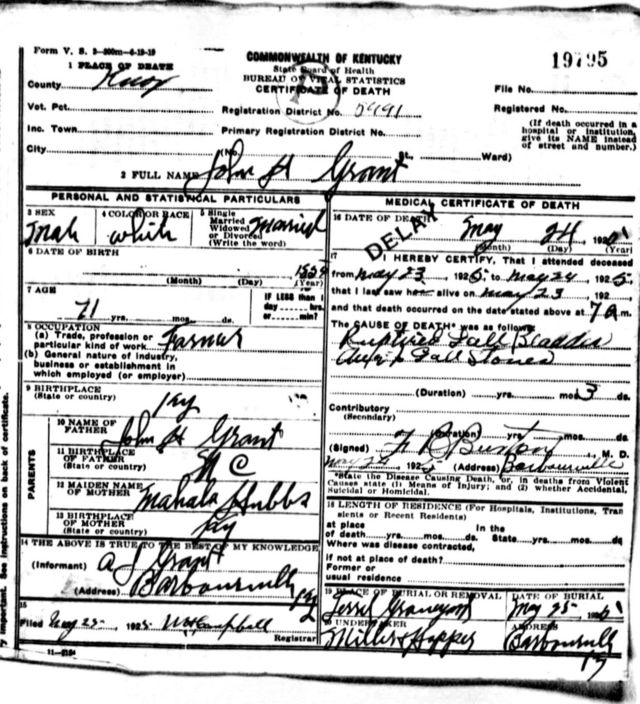 Form V. S. 2-200m-6-19-19
COMMONWEALTH OF KENTUCKY
State Board of Health
BUREAU OF VITAL STATISTICS
CERTIFICATE OF DEATH
19795
1 PLACE OF DEATH
County Knox
File No.
Vot. Pct.
Registration District No.
Registered No.
Inc. Town
Primary Registration District No.
(If death occurred in a hospital or institution, give its NAME instead of street and number.)
City (No. St., Ward)
2 FULL NAME John H Grant
PERSONAL AND STATISTICAL PARTICULARS
3 SEX
Male
4 COLOR OR RACE
white
5 Single
Married
Widowed
or Divorced
(Write the word)
Married
6 DATE OF BIRTH
(Month) (Day) (Year)
7 AGE
71 yrs. mos. ds.
IF LESS than 1 day hrs. or min?
8 OCCUPATION
(a) Trade, profession or particular kind of work Farmer
(b) General nature of industry, business or establishment in which employed (or employer)
9 BIRTHPLACE
(State or country)
Ky
PARENTS
10 NAME OF FATHER
John H Grant
11 BIRTHPLACE OF FATHER
(State or country)
N C
12 MAIDEN NAME OF MOTHER
Mahala Hubbs
13 BIRTHPLACE OF MOTHER
(State or country)
Ky
14 THE ABOVE IS TRUE TO THE BEST OF MY KNOWLEDGE
(Informant) A J Grant
(Address) Barbourville Ky
15
Filed May 25, 1925 Campbell
Registrar
11-3184
MEDICAL CERTIFICATE OF DEATH
DELAY
16 DATE OF DEATH May 24 192
(Month) (Day) (Year)
17
I HEREBY CERTIFY, That I attended deceased
from May 23 1925 to May 24 1925
that I last saw h alive on May 23, 192
and that death occurred on the date stated above at 7 a m.
The CAUSE OF DEATH* was as follows:
Ruptured Gall Bladder
Gall Stones
(Duration) yrs. mos. 3 ds.
Contributory
(Secondary)
(Duration) yrs. mos. ds.
(Signed) Burton, M. D.
May 24 1925 (Address) Barbourville
*State the Disease Causing Death, or, in deaths from Violent Causes state (1) Means of Injury; and (2) whether Accidental, Suicidal or Homicidal.
18 LENGTH OF RESIDENCE (For Hospitals, Institutions, Transients or Recent Residents)
At place of death yrs. mos. ds. In the State yrs. mos. ds
Where was disease contracted,
if not at place of death?
Former or
usual residence
19 PLACE OF BURIAL OR REMOVAL
Graveyard
DATE OF BURIAL
May 25 192
20 UNDERTAKER
Miller & Hopper
ADDRESS
Barbourville
Ky
See instructions on back of certificate.